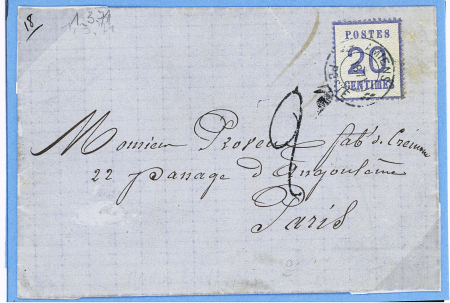 18
1.3.71
POSTES
20
CENTIMES
AMIENS
2
Monsieur Proven fabt de Crémone
22 passage d'Angoulême
Paris